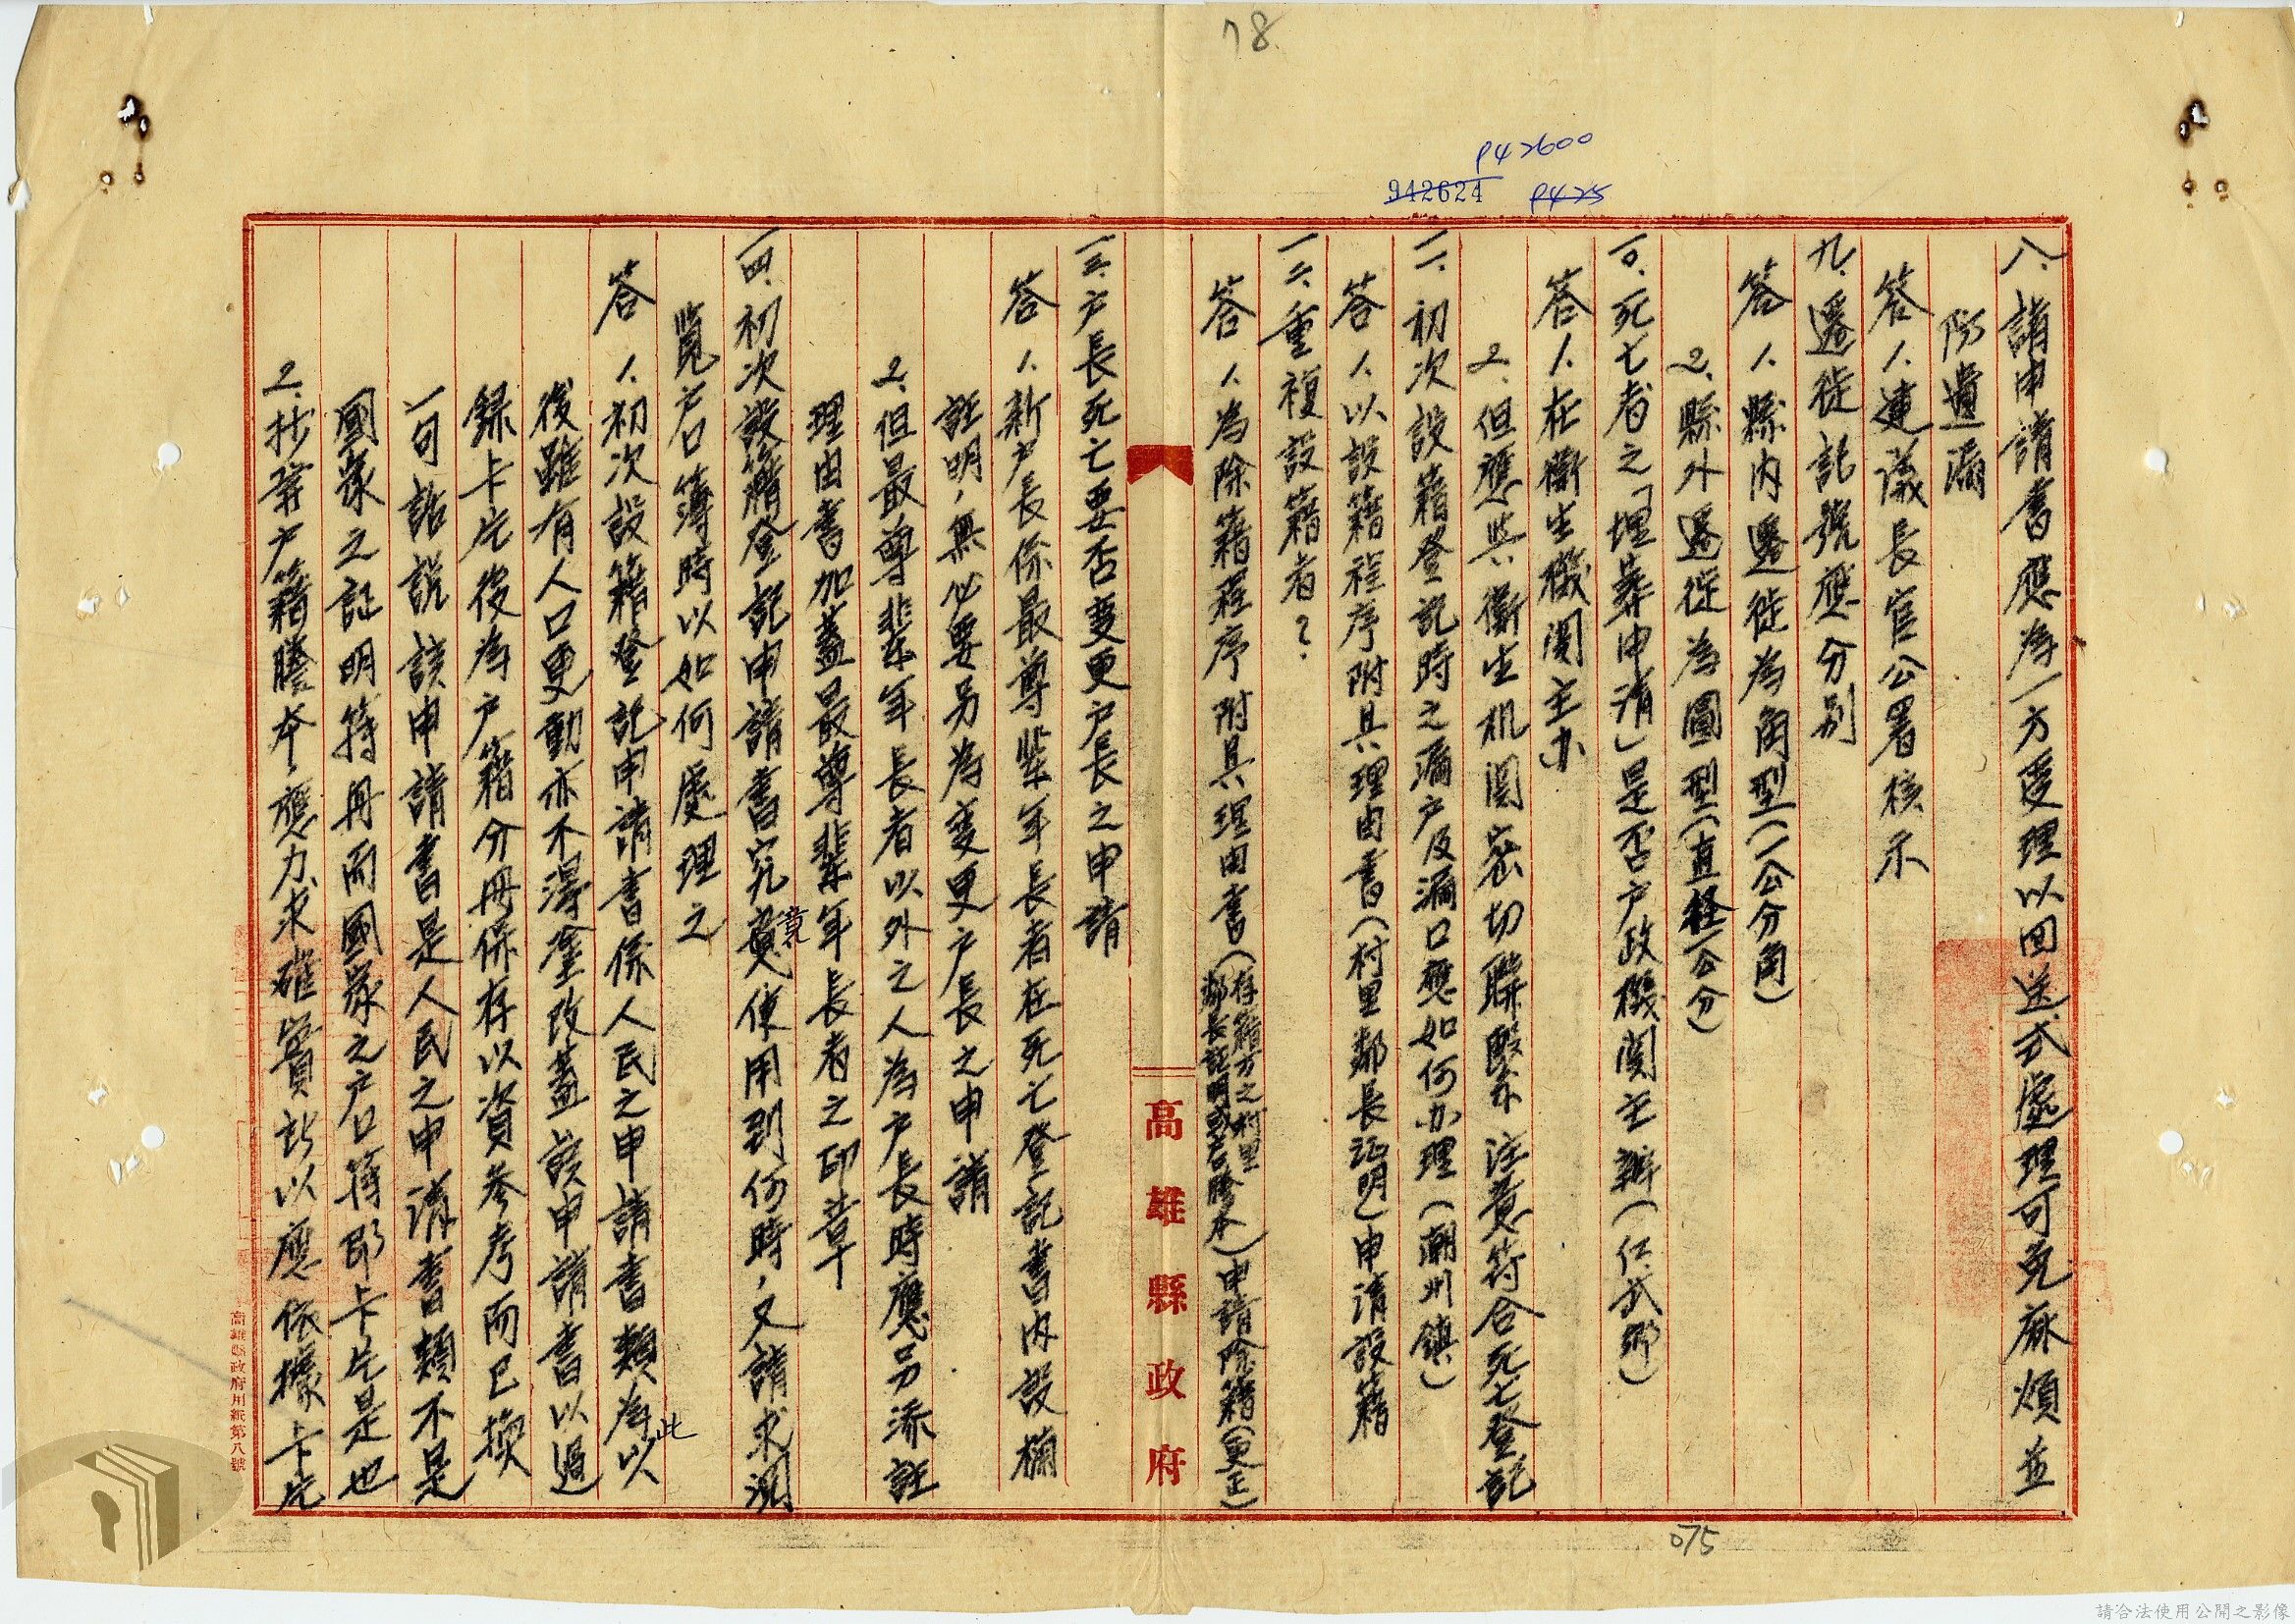 78.
942624
P42600
P425
八、請申請書應為一方受理以回送式處理可免麻煩並
防遺漏
答 1.建議長官公署核示
九、遷徙記號應分別
答 1.縣内遷徙為角型(一公分角)
2.縣外遷徙為圓型(直経一公分)
一〇、死亡者之「埋葬申請」是否户政機関主辦(仁武鄉)
答 1.在衛生機関主办
2.但應與衛生机関密切聯繫 注意符合死亡登記
一一、初次設籍登記時之漏户及漏口應如何办理(潮州鎮)
答 1.以設籍程序附具理由書(村里鄰長証明)申請設籍
一二、重複設籍者?
答 1.為除籍程序附具理由書(存籍方之村里鄰長証明或者謄本)申請除籍(更正)
高雄縣政府
一三、户長死亡要否變更户長之申請
答 1.新户長係最尊輩年長者在死亡登記書内設欄
註明,無必要另為變更户長之申請
2.但最尊輩年長者以外之人為户長時應另添註
理由書加蓋最尊輩年長者之印章
一四、初次設籍登記申請書究竟使用到何時,又請求閲
覽户口簿時以如何處理之
答 1.初次設籍登記申請書係人民之申請書類為以此
後雖有人口更動亦不得塗改蓋該申請書以過
録卡片後為户籍分冊保存以資參考而已換
一句話説該申請書是人民之申請書類不是
國家之証明簿冊而國家之户口簿即卡片是也
2.抄寄户籍謄本應力求確實所以應依據卡片
高雄縣政府用紙第八號
075
請合法使用公開之影像